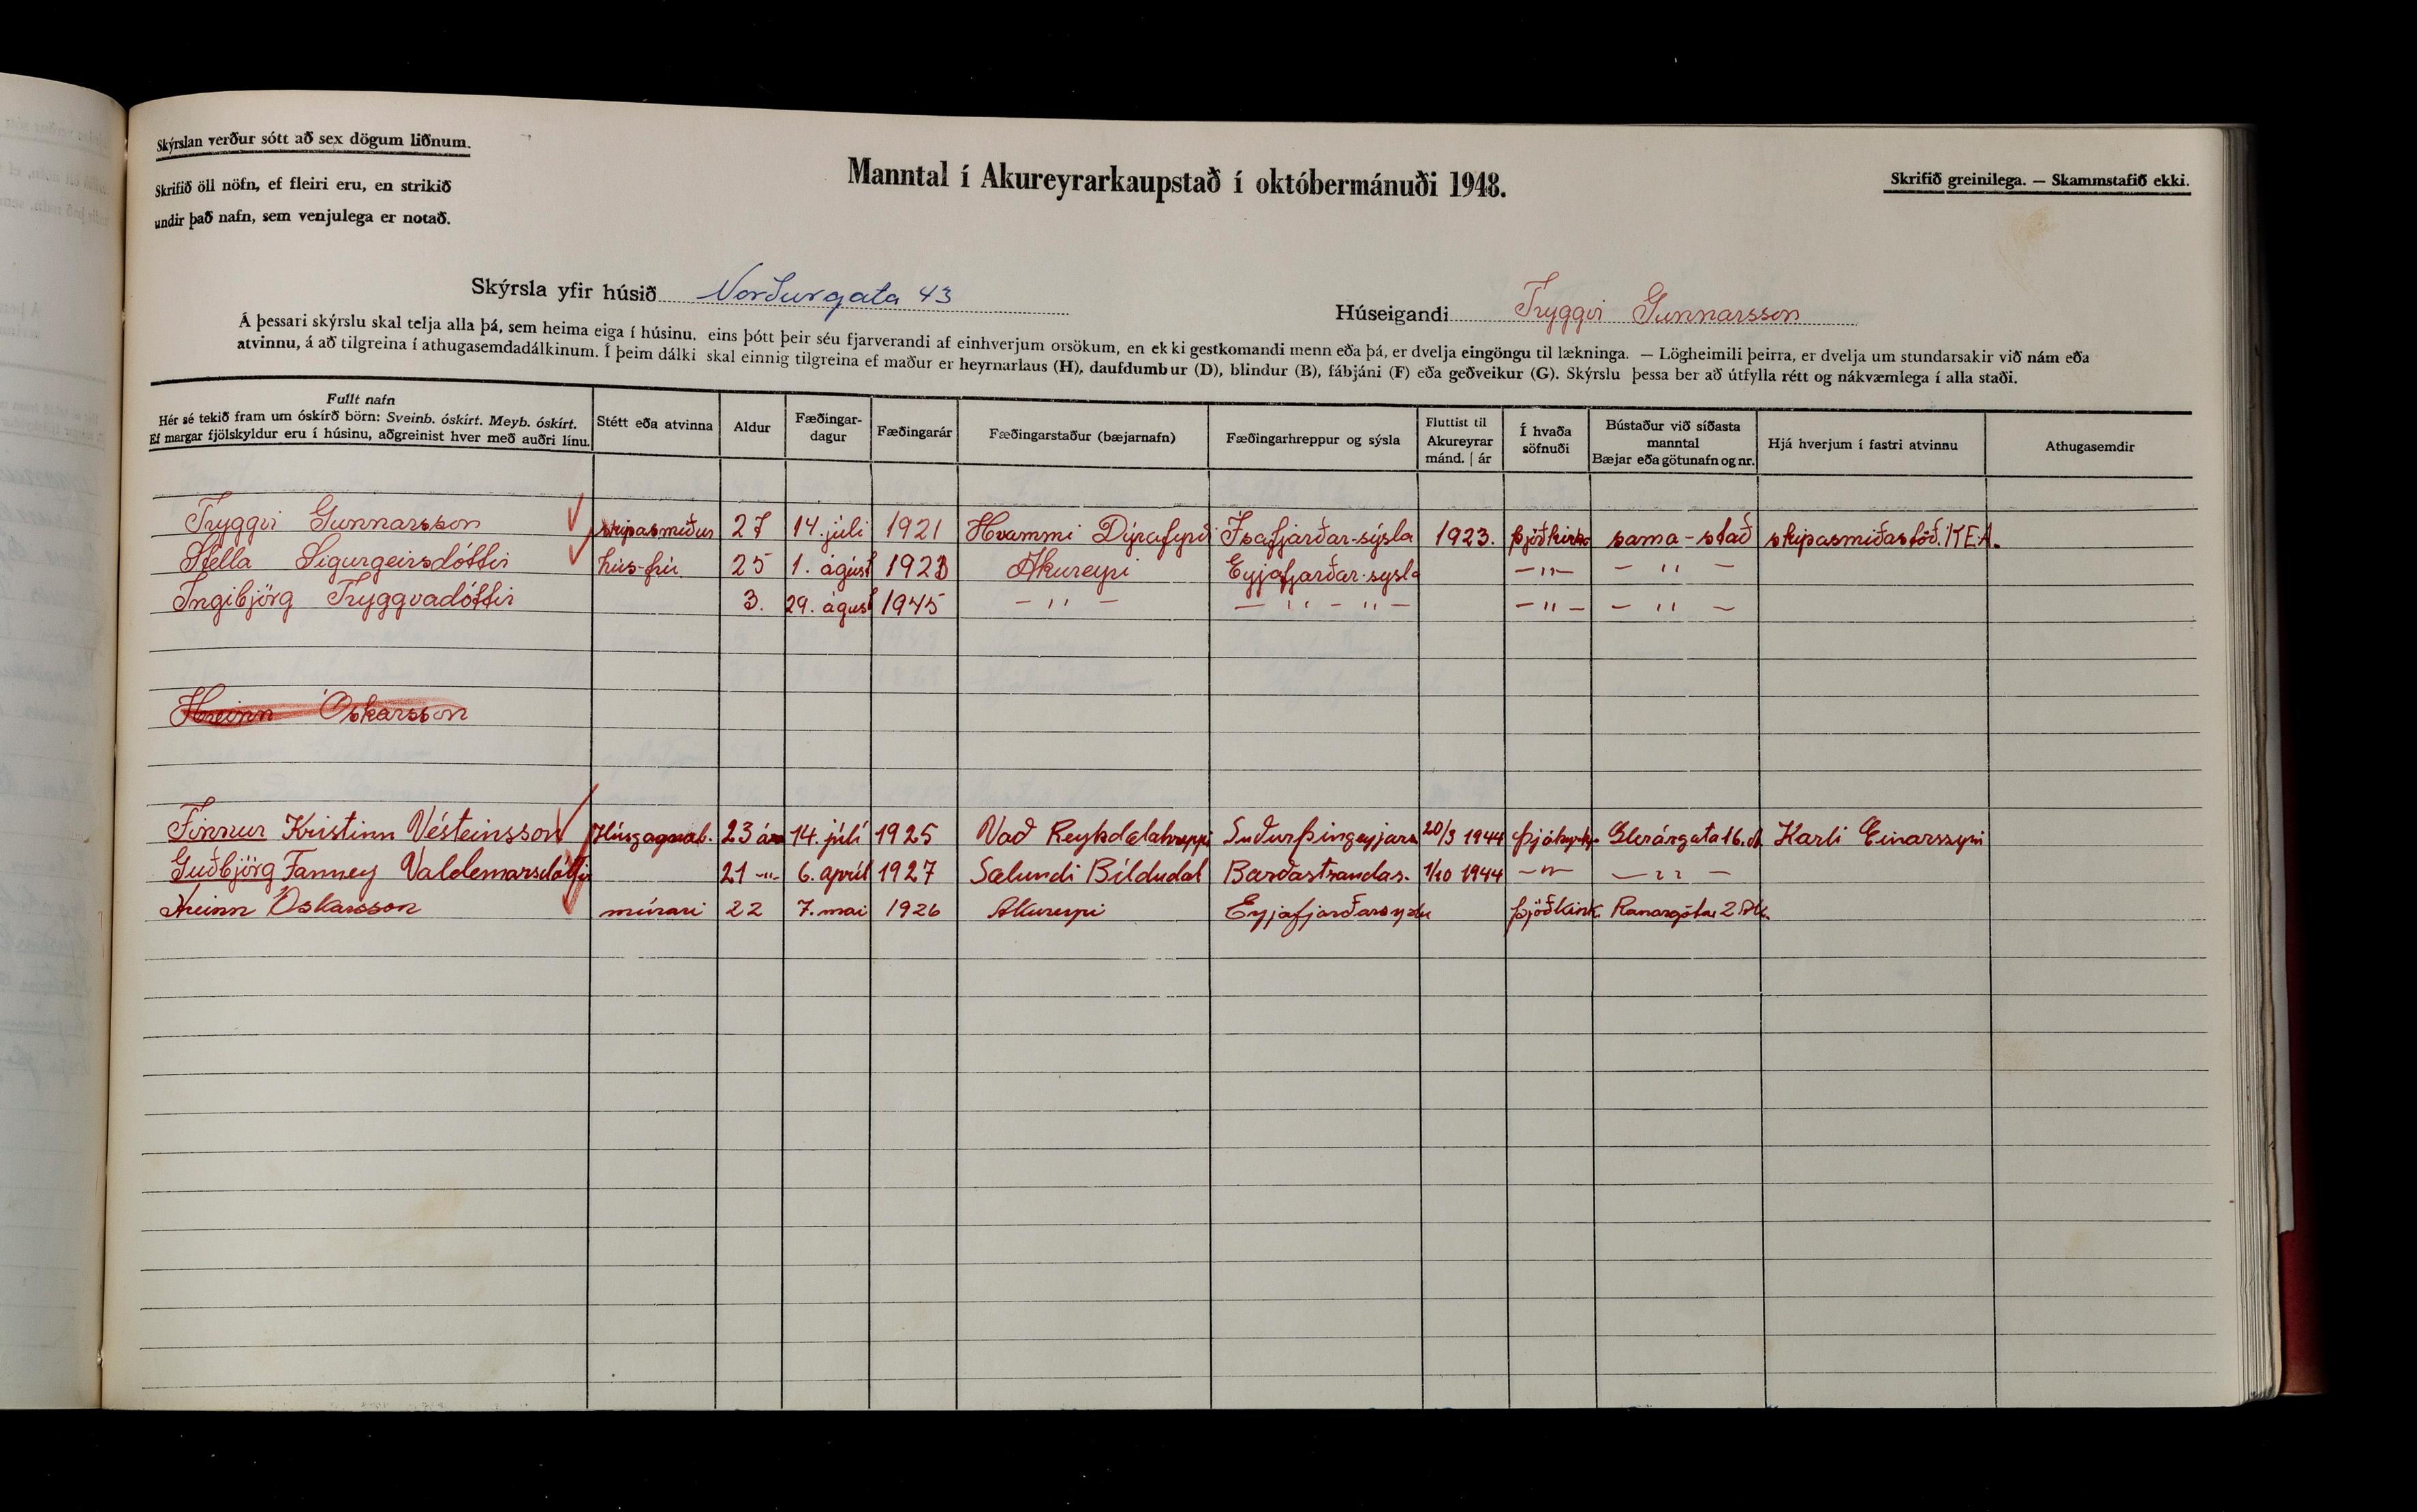 Skýrslan verður sótt að sex dögum liðnum.
Skrifið öll nöfn, ef fleiri eru, en strikið
undir það nafn, sem venjulega er notað.
Manntal í Akureyrarkaupstað í októbermánuði 1948.
Skrifið greinilega. — Skammstafið ekki.
Skýrsla yfir húsið Norðurgata 43
Húseigandi Tryggvi Gunnarsson
Á þessari skýrslu skal telja alla þá, sem heima eiga í húsinu, eins þótt þeir séu fjarverandi af einhverjum orsökum, en ekki gestkomandi menn eða þá, er dvelja eingöngu til lækninga. — Lögheimili þeirra, er dvelja um stundarsakir við nám eða
atvinnu, á að tilgreina í athugasemdadálkinum. Í þeim dálki skal einnig tilgreina ef maður er heyrnarlaus (H), daufdumbur (D), blindur (B), fábjáni (F) eða geðveikur (G). Skýrslu þessa ber að útfylla rétt og nákvæmlega í alla staði.
Fullt nafn
Hér sé tekið fram um óskírð börn: Sveinb. óskírt. Meyb. óskírt.
Ef margar fjölskyldur eru í húsinu, aðgreinist hver með auðri línu.
Stétt eða atvinna
Aldur
Fæðingar-
dagur
Fæðingarár
Fæðingarstaður (bæjarnafn)
Fæðingarhreppur og sýsla
Fluttist til
Akureyrar
mánd. | ár
Í hvaða
söfnuði
Bústaður við síðasta
manntal
Bæjar eða götunafn og nr.
Hjá hverjum í fastri atvinnu
Athugasemdir
Tryggvi Gunnarsson skipasmiður 27 14. júlí 1921 Hvammi Dýrafyrði Ísafjarðar-sýsla 1923. þjóðkirk sama-stað skipasmiðastöð. KEA.
Stella Sigurgeirsdóttir hús-frú 25 1. ágúst 1923 Akureyri Eyjafjarðar-sýsla — " — — " —
Ingibjörg Tryggvadóttir 3. 29. ágúst 1945 — " — — " — " — — " — — " —
Hreinn Óskarsson
Finnur Kristinn Vésteinsson Húsgagnab. 23 ára 14. júlí 1925 Nað Reykdalahreppi Suðurþingeyjars 20/3 1944 Glerárgata 16. Karli Einarssyni
Guðbjörg Fanney Valdemarsdóttir 21 -"- 6. apríl 1927 Sælundi Bíldudal Barðastrandas. 1/10 1944 — " — — " —
Hreinn Óskarsson múrari 22 7. maí 1926 Akureyri Eyjafjarðarsýslu þjóðkirk. Ránargötu 2 Ak.